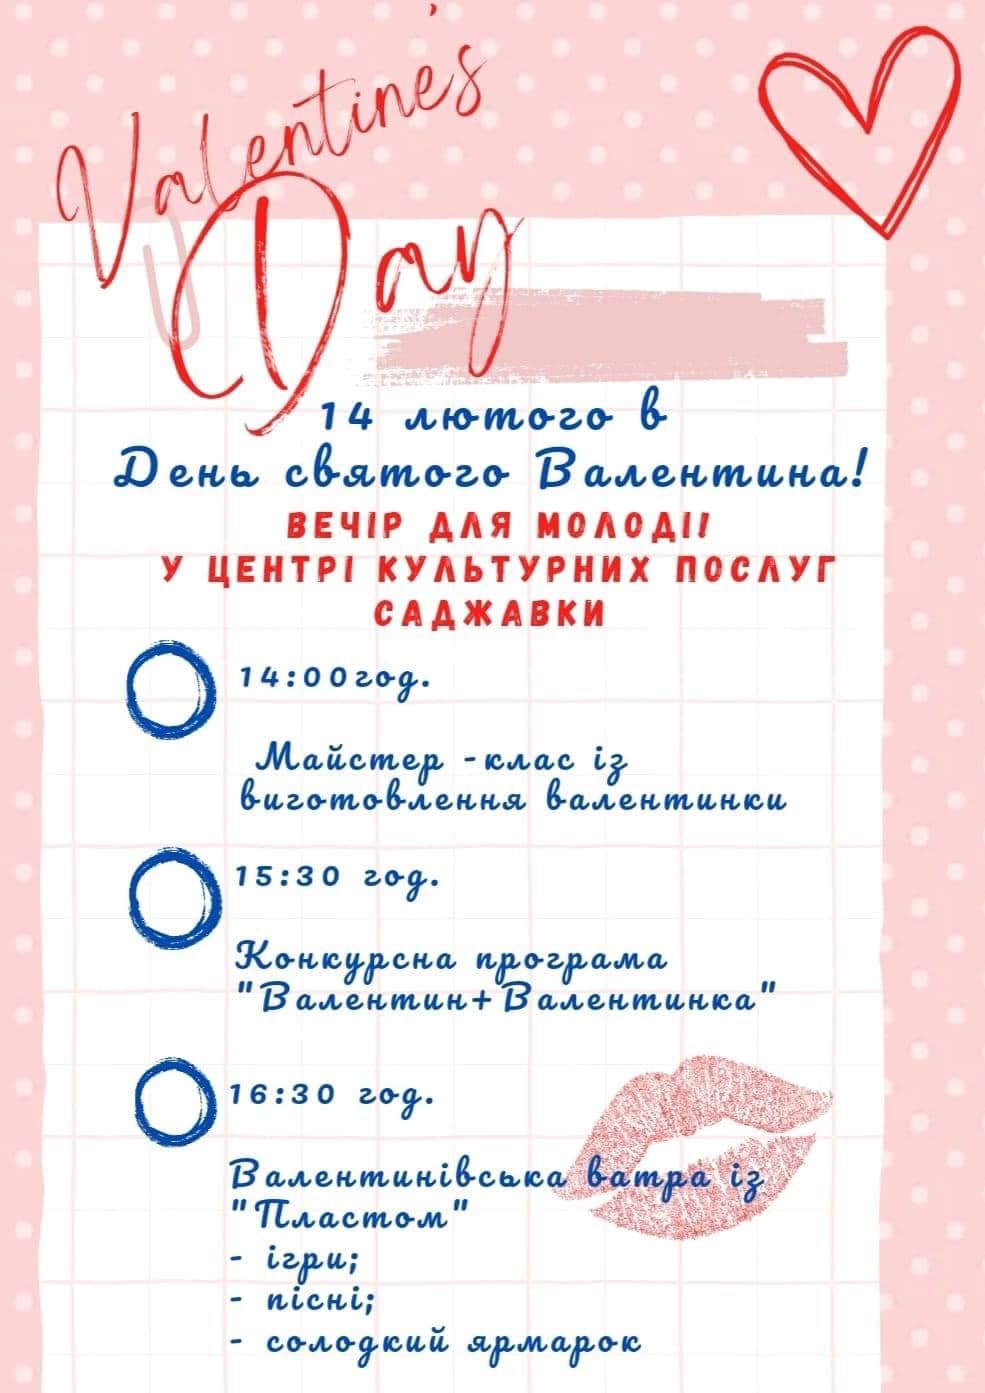 Valentine's
Day
14 лютого в
День святого Валентина!
ВЕЧІР ДЛЯ МОЛОДІ!
У ЦЕНТРІ КУЛЬТУРНИХ ПОСЛУГ
САДЖАВКИ
14:00год.
Майстер -клас із
виготовлення валентинки
15:30 год.
Конкурсна програма
"Валентин+Валентинка"
16:30 год.
Валентинівська ватра із
"Пластом"
- ігри;
- пісні;
- солодкий ярмарок